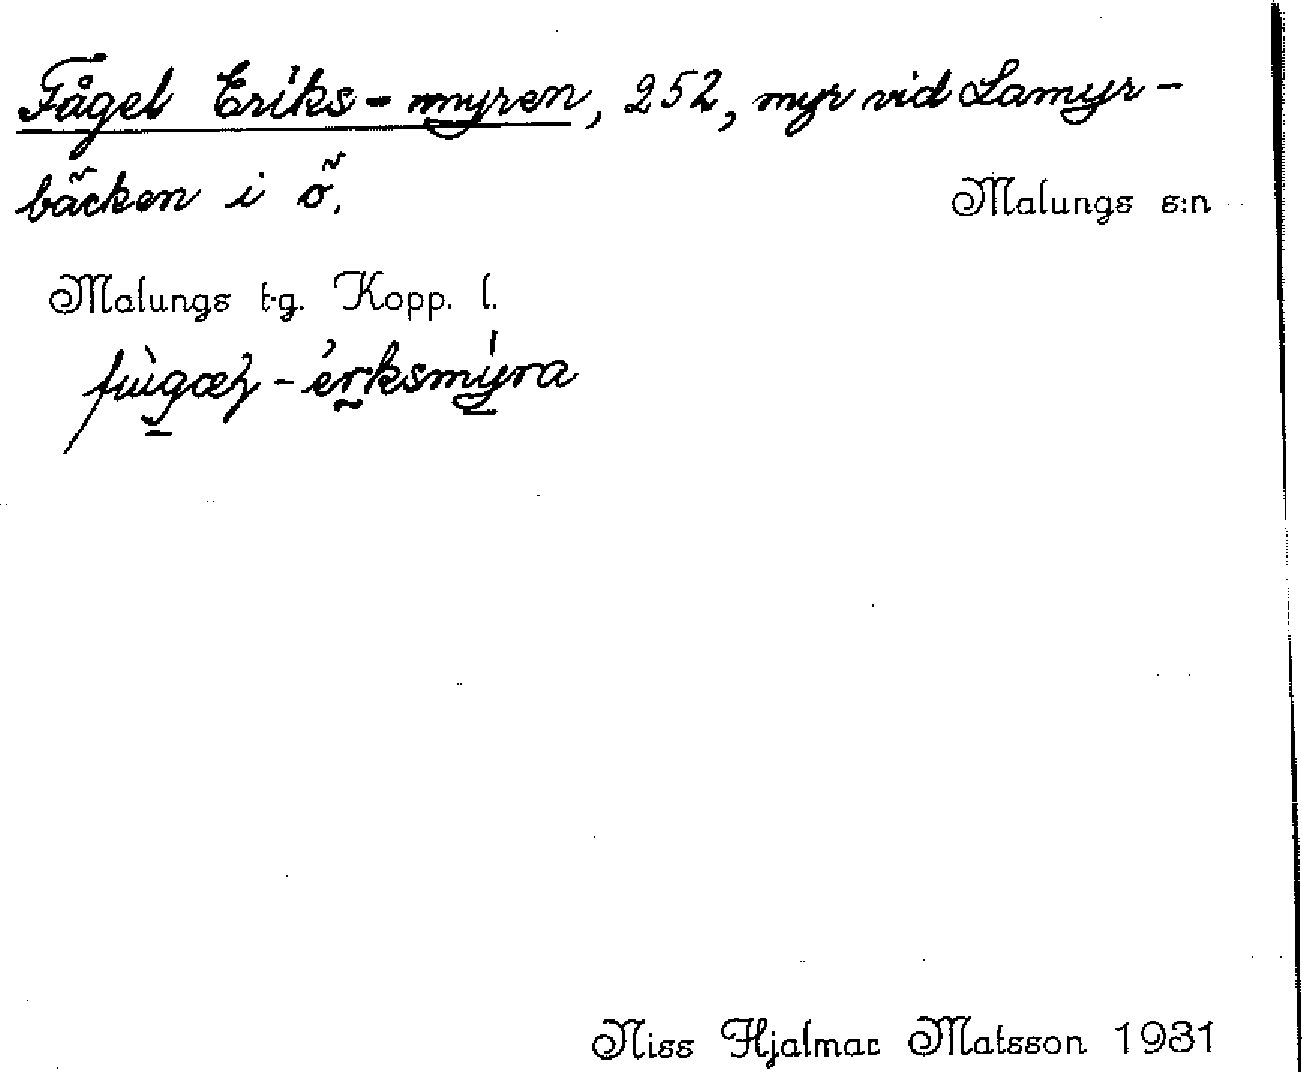 Fågel Eriks-myren, 252, myr vid Lamyr-
bäcken i ö.
Malungs s:n
Malungs t-g. Kopp. l.
Niss Hjalmar Matsson 1931